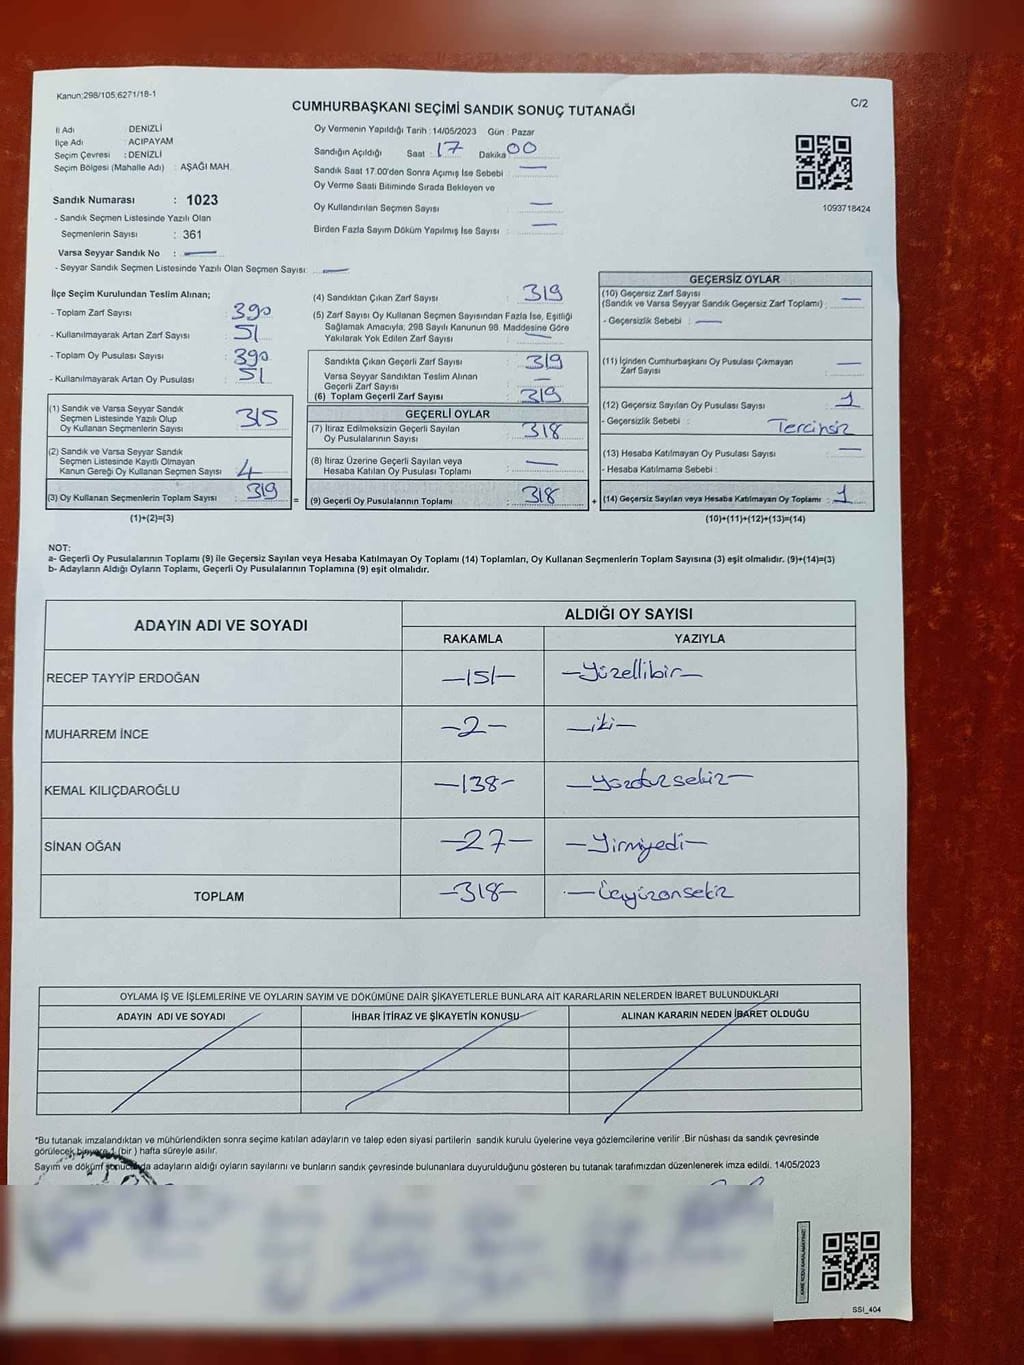 Kanun:298/105;6271/18-1
CUMHURBAŞKANI SEÇİMİ SANDIK SONUÇ TUTANAĞI
C/2
İl Adı DENİZLİ
İlçe Adı : ACIPAYAM
Seçim Çevresi : DENİZLİ
Seçim Bölgesi (Mahalle Adı) : AŞAĞI MAH.
Sandık Numarası : 1023
- Sandık Seçmen Listesinde Yazılı Olan
Seçmenlerin Sayısı : 361
Varsa Seyyar Sandık No : —
- Seyyar Sandık Seçmen Listesinde Yazılı Olan Seçmen Sayısı: —
Oy Vermenin Yapıldığı Tarih : 14/05/2023 Gün : Pazar
Sandığın Açıldığı Saat : 17 Dakika 00
Sandık Saat 17.00'den Sonra Açımış İse Sebebi : —
Oy Verme Saati Bitiminde Sırada Bekleyen ve
Oy Kullandırılan Seçmen Sayısı : —
Birden Fazla Sayım Döküm Yapılmış İse Sayısı : —
1093718424
İlçe Seçim Kurulundan Teslim Alınan;
- Toplam Zarf Sayısı : 390
- Kullanılmayarak Artan Zarf Sayısı : 51
- Toplam Oy Pusulası Sayısı : 390
- Kullanılmayarak Artan Oy Pusulası : 51
(1) Sandık ve Varsa Seyyar Sandık
Seçmen Listesinde Yazılı Olup
Oy Kullanan Seçmenlerin Sayısı : 315
(2) Sandık ve Varsa Seyyar Sandık
Seçmen Listesinde Kayıtlı Olmayan
Kanun Gereği Oy Kullanan Seçmen Sayısı : 4
(3) Oy Kullanan Seçmenlerin Toplam Sayısı : 319 =
(1)+(2)=(3)
(4) Sandıktan Çıkan Zarf Sayısı : 319
(5) Zarf Sayısı Oy Kullanan Seçmen Sayısından Fazla İse, Eşitliği
Sağlamak Amacıyla, 298 Sayılı Kanunun 98. Maddesine Göre
Yakılarak Yok Edilen Zarf Sayısı : —
Sandıkta Çıkan Geçerli Zarf Sayısı : 319
Varsa Seyyar Sandıktan Teslim Alınan
Geçerli Zarf Sayısı : —
(6) Toplam Geçerli Zarf Sayısı : 319
GEÇERLİ OYLAR
(7) İtiraz Edilmeksizin Geçerli Sayılan
Oy Pusulalarının Sayısı : 318
(8) İtiraz Üzerine Geçerli Sayılan veya
Hesaba Katılan Oy Pusulası Toplamı : —
(9) Geçerli Oy Pusulalarının Toplamı : 318 +
GEÇERSİZ OYLAR
(10) Geçersiz Zarf Sayısı
(Sandık ve Varsa Seyyar Sandık Geçersiz Zarf Toplamı) : —
- Geçersizlik Sebebi : —
(11) İçinden Cumhurbaşkanı Oy Pusulası Çıkmayan
Zarf Sayısı : —
(12) Geçersiz Sayılan Oy Pusulası Sayısı : 1
- Geçersizlik Sebebi : Tercihsiz
(13) Hesaba Katılmayan Oy Pusulası Sayısı : —
- Hesaba Katılmama Sebebi :
(14) Geçersiz Sayılan veya Hesaba Katılmayan Oy Toplamı : 1
(10)+(11)+(12)+(13)=(14)
NOT:
a- Geçerli Oy Pusulalarının Toplamı (9) ile Geçersiz Sayılan veya Hesaba Katılmayan Oy Toplamı (14) Toplamları, Oy Kullanan Seçmenlerin Toplam Sayısına (3) eşit olmalıdır. (9)+(14)=(3)
b- Adayların Aldığı Oyların Toplamı, Geçerli Oy Pusulalarının Toplamına (9) eşit olmalıdır.
ADAYIN ADI VE SOYADI
ALDIĞI OY SAYISI
RAKAMLA YAZIYLA
RECEP TAYYİP ERDOĞAN —151— —Yüzellibir—
MUHARREM İNCE —2— —iki—
KEMAL KILIÇDAROĞLU —138— —Yüzotuzsekiz—
SİNAN OĞAN —27— —Yirmiyedi—
TOPLAM —318— —Üçyüzonsekiz
OYLAMA İŞ VE İŞLEMLERİNE VE OYLARIN SAYIM VE DÖKÜMÜNE DAİR ŞİKAYETLERLE BUNLARA AİT KARARLARIN NELERDEN İBARET BULUNDUKLARI
ADAYIN ADI VE SOYADI İHBAR İTİRAZ VE ŞİKAYETİN KONUSU ALINAN KARARIN NEDEN İBARET OLDUĞU
*Bu tutanak imzalandıktan ve mühürlendikten sonra seçime katılan adayların ve talep eden siyasi partilerin sandık kurulu üyelerine veya gözlemcilerine verilir .Bir nüshası da sandık çevresinde
görülecek bir yere 1 (bir ) hafta süreyle asılır.
Sayım ve döküm sonucunda adayların aldığı oyların sayılarını ve bunların sandık çevresinde bulunanlara duyurulduğunu gösteren bu tutanak tarafımızdan düzenlenerek imza edildi. 14/05/2023
SSI_404